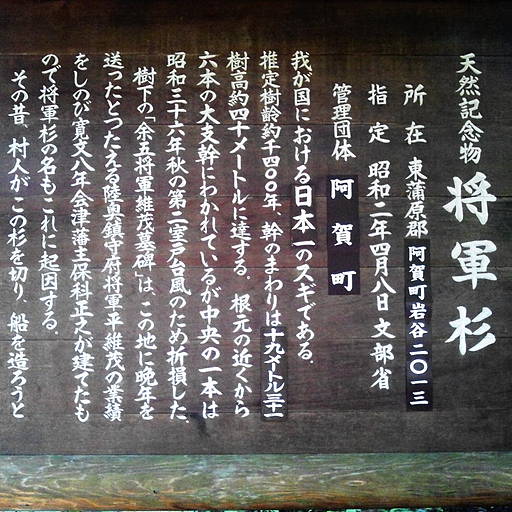 天然記念物 将軍杉
所在 東蒲原郡阿賀町岩谷二〇一三
指定 昭和二年四月八日 文部省
管理団体 阿賀町
我が国における日本一のスギである.
推定樹齢約千四〇〇年、幹のまわりは十九メートル三十一
樹高約四十メートルに達する。根元の近くから
六本の大支幹にわかれているが中央の一本は
昭和三十六年秋の第二室戸台風のため折損した.
樹下の「余五将軍維茂墓碑」は、この地に晩年を
送ったとつたえる陸奥鎮守府将軍平維茂の業績
をしのび寛文八年会津藩主保科正之が建てたも
ので将軍杉の名もこれに起因する.
その昔、村人がこの杉を切り、船を造ろうと